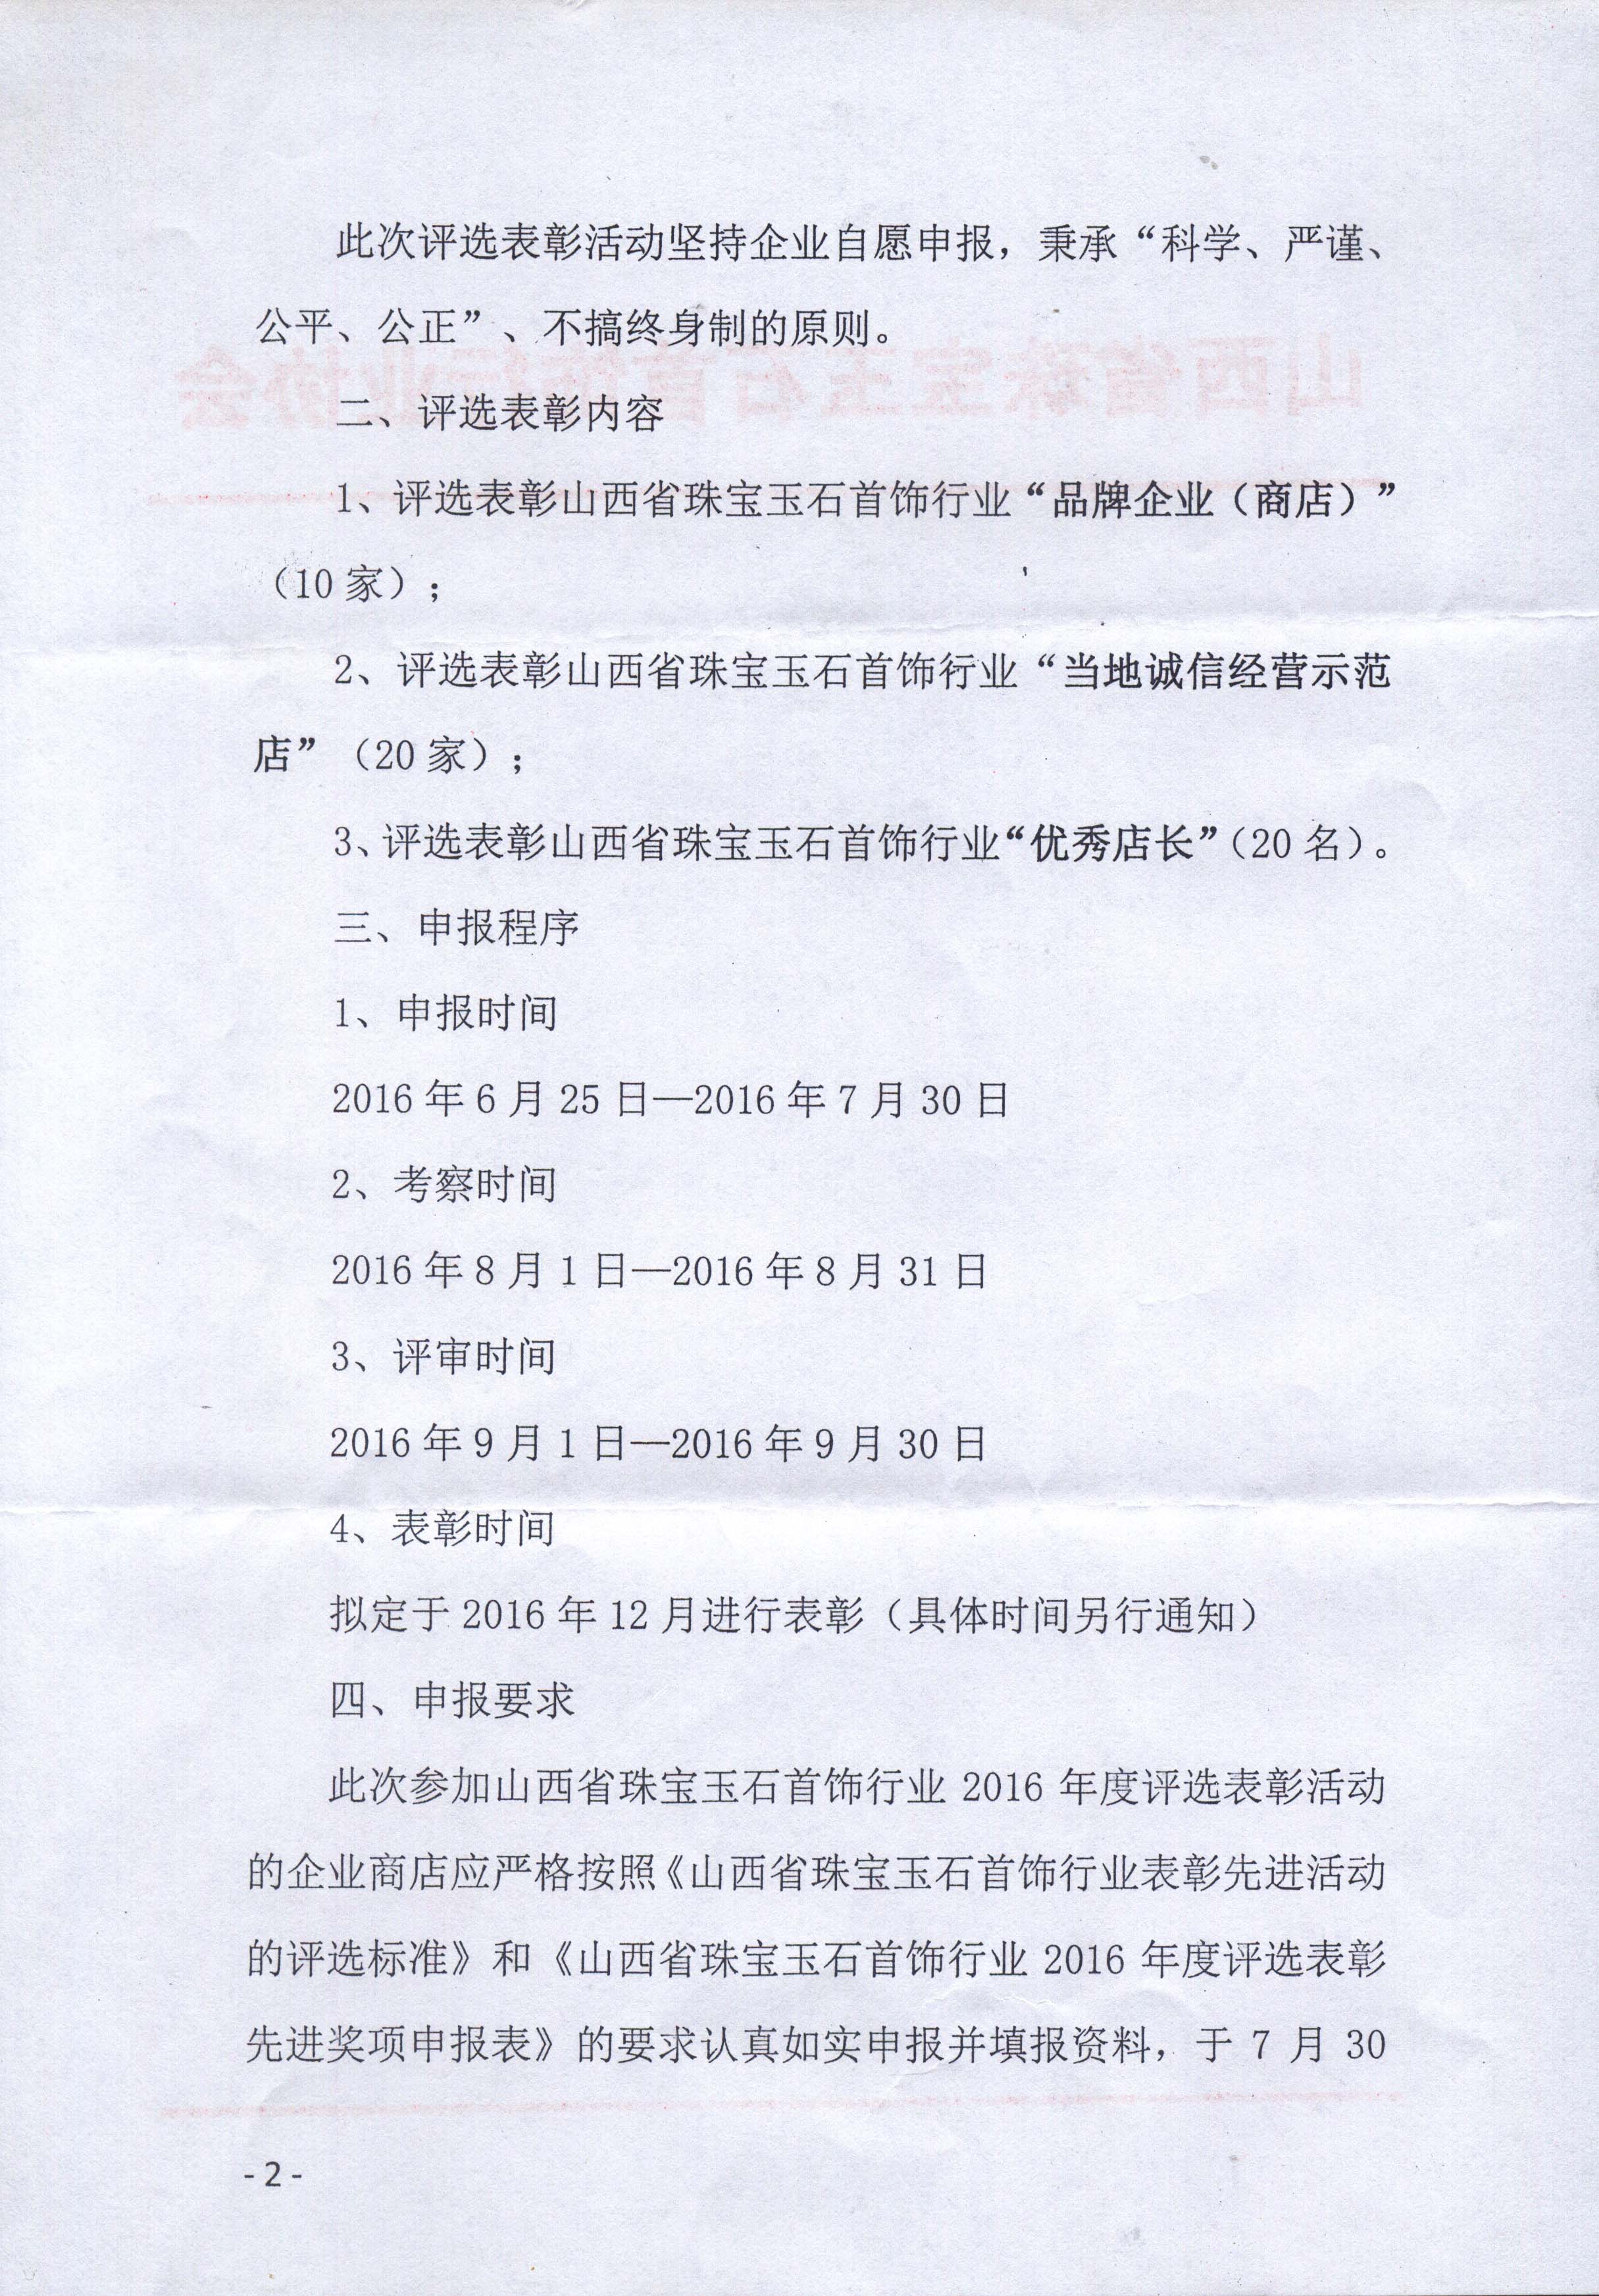 此次评选表彰活动坚持企业自愿申报，秉承“科学、严谨、
公平、公正”、不搞终身制的原则。
山西省珠宝玉石首饰行业协会
二、评选表彰内容
1、评选表彰山西省珠宝玉石首饰行业“品牌企业（商店）”
（10 家）；
2、评选表彰山西省珠宝玉石首饰行业“当地诚信经营示范
店”（20 家）；
3、评选表彰山西省珠宝玉石首饰行业“优秀店长”（20 名）。
三、申报程序
1、申报时间
2016 年 6 月 25 日—2016 年 7 月 30 日
2、考察时间
2016 年 8 月 1 日—2016 年 8 月 31 日
3、评审时间
2016 年 9 月 1 日—2016 年 9 月 30 日
4、表彰时间
拟定于 2016 年 12 月进行表彰（具体时间另行通知）
四、申报要求
此次参加山西省珠宝玉石首饰行业 2016 年度评选表彰活动
的企业商店应严格按照《山西省珠宝玉石首饰行业表彰先进活动
的评选标准》和《山西省珠宝玉石首饰行业 2016 年度评选表彰
先进奖项申报表》的要求认真如实申报并填报资料，于 7 月 30
- 2 -